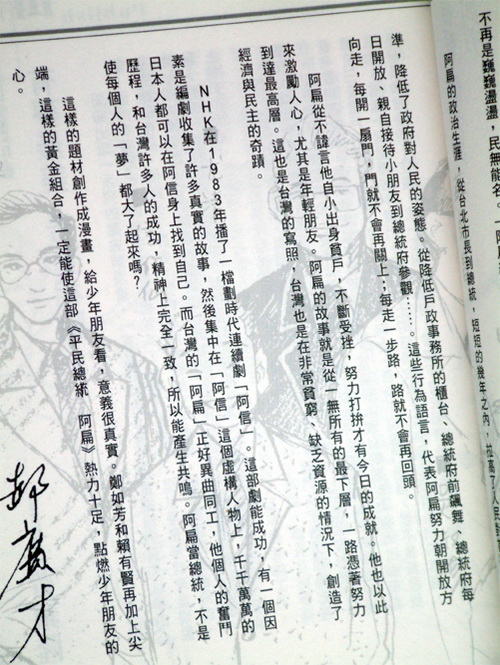 不再是巍巍盪盪，民無能名。
阿扁的政治生涯，從台北市長到總統，短短的幾年之內，拉高了人民對
準，降低了政府對人民的姿態。從降低戶政事務所的櫃台、總統府前飆舞、總統府每
日開放、親自接待小朋友到總統府參觀……。這些行為語言，代表阿扁努力朝開放方
向走，每開一扇門，門就不會再關上；每走一步路，路就不會再回頭。
阿扁從不諱言他自小出身貧戶，不斷受挫，努力打拚才有今日的成就。他也以此
來激勵人心，尤其是年輕朋友。阿扁的故事就是從一無所有的最下層，一路憑著努力
到達最高層。這也是台灣的寫照，台灣也是在非常貧窮、缺乏資源的情況下，創造了
經濟與民主的奇蹟。
NHK在1983年播了一檔劃時代連續劇「阿信」。這部劇能成功，有一個因
素是編劇收集了許多真實的故事，然後集中在「阿信」這個虛構人物上，千千萬萬的
日本人都可以在阿信身上找到自己。而台灣的「阿扁」正好異曲同工，他個人的奮鬥
歷程，和台灣許多人的成功，精神上完全一致，所以能產生共鳴。阿扁當總統，不是
使每個人的「夢」都大了起來嗎？
這樣的題材創作成漫畫，給少年朋友看，意義很真實。鄭如芳和賴有賢再加上尖
端，這樣的黃金組合，一定能使這部《平民總統 阿扁》熱力十足，點燃少年朋友的
心。
郝廣才